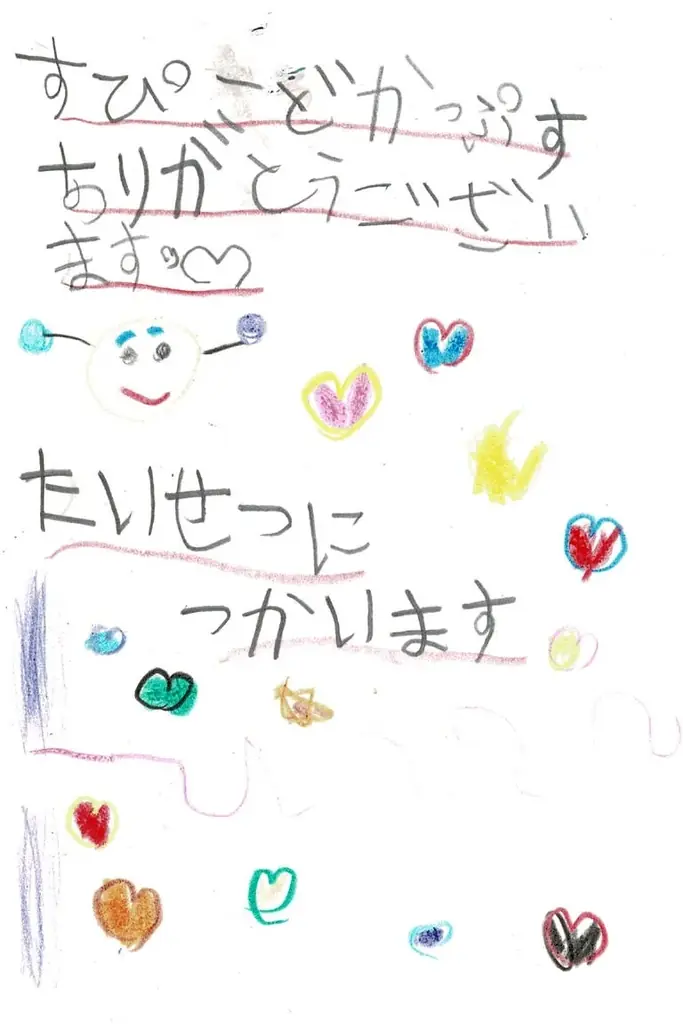 すぴーどかっぷす
ありがとうござい
ます♡
たいせつに
つかいます